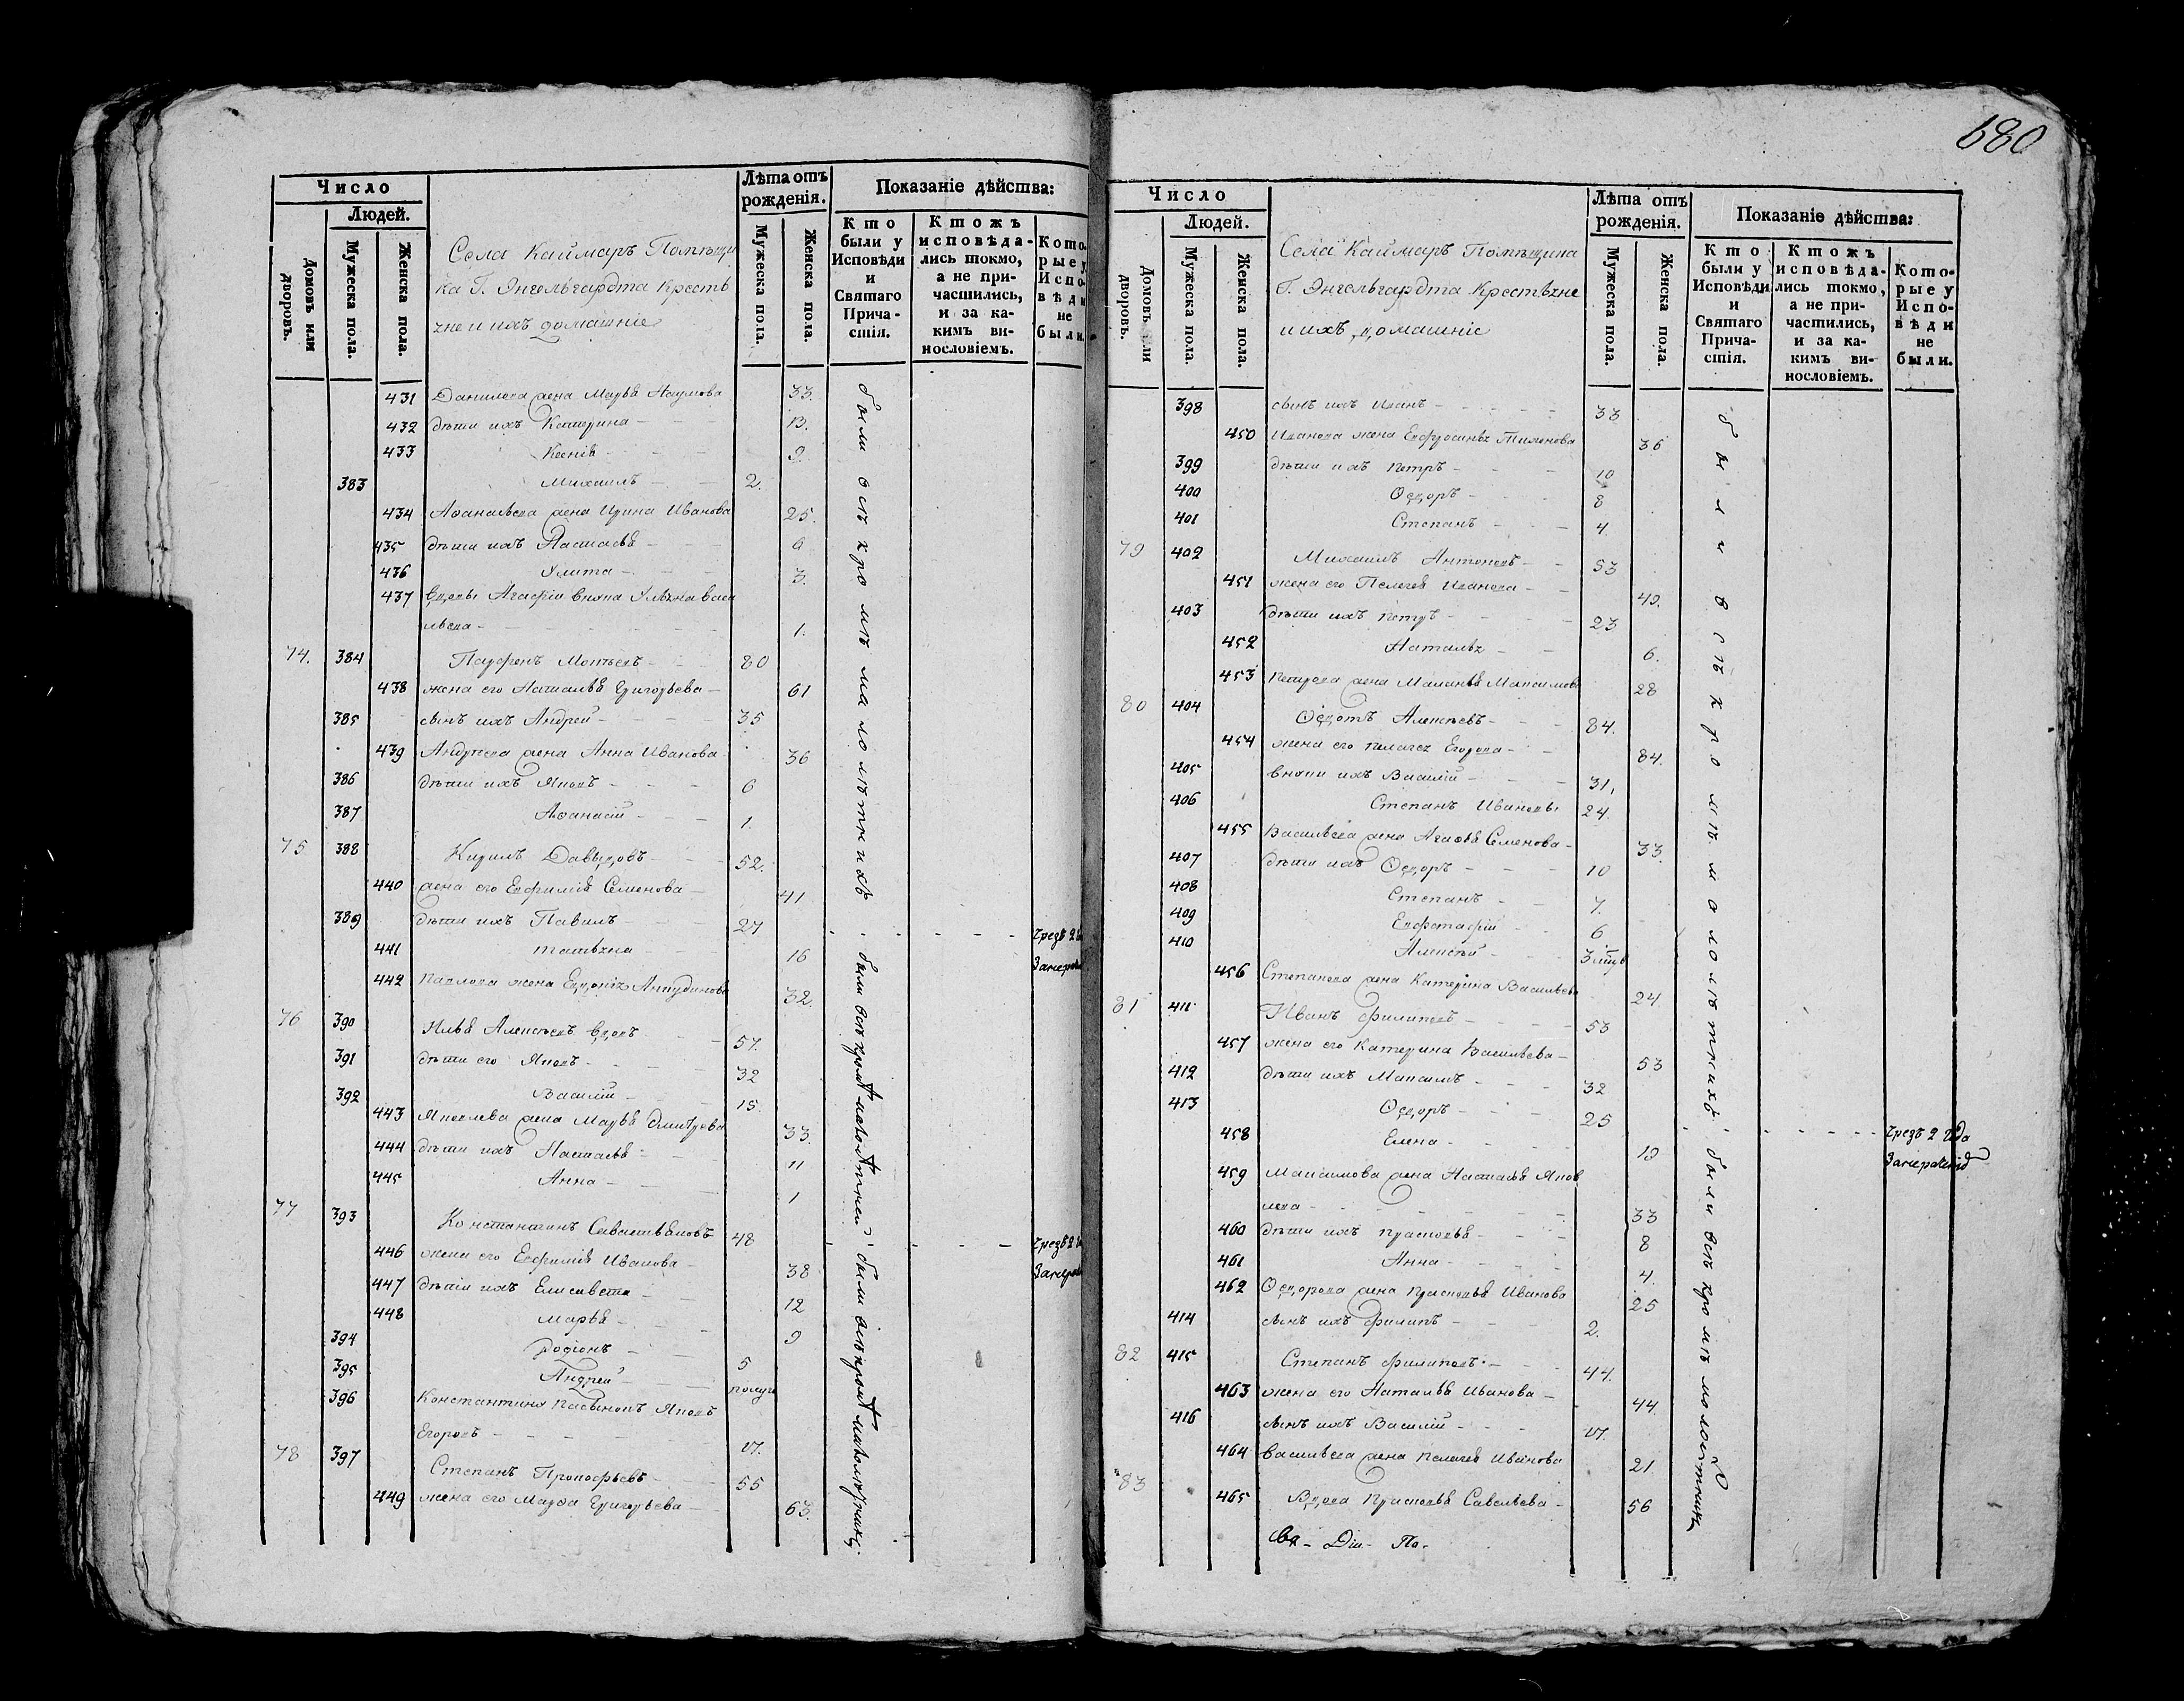 680
Число
Людей.
Домовъ или дворовъ.
Мужеска пола.
Женска пола.
Села Каймаръ Помѣщи
ка Г. Энгельгардта Крестъ
яне и ихъ домашніе
Лѣта отъ рожденія.
Мужеска пола.
Женска пола.
Показаніе дѣйства:
Кто были у Исповѣди и Святаго Прича-стія.
Ктожъ исповѣда-лись токмо, а не при-частились, и за ка-кимъ ви-нословіемъ.
Кото-рые у Испо-вѣди не были.
431 Данилова жена Марья Наумова 33.
432 дѣти ихъ Катерина 13.
433 Ксенія 9.
383 Михаилъ 2.
434 Аѳанасьева жена Ирина Иванова 25.
435 дѣти ихъ Настасья 6
436 Улита 3.
437 Вдовы Агафіи внука Ульяна Васи
льева 1.
74. 384 Парфенъ Мотеевъ 80
438 жена его Наталья Григорьева 61
385 сынъ ихъ Андрей 35
439 Андреева жена Анна Иванова 36
386 дѣти ихъ Яковъ 6
387 Аѳанасій 1.
75 388 Кирилъ Давыдовъ 52.
440 жена его Евфимія Семенова 41
389 дѣти ихъ Павилъ 27
чрезъ 2
441 татьяна 16
442 Павлова жена Евдокія Анкудинова 32.
76 390 Илья Алексѣевъ вдовъ 57.
391 дѣти его Яковъ 32
392 Василій 15.
443 Яковлева жена Марья Дмитрева 33.
444 дѣти ихъ Настасья 11
445 Анна 1
77 393 Константинъ Савастьяновъ 48
чрезъ 2
446 жена его Евфимія Иванова 38
447 дѣти ихъ Елисавета 12
448 марья 9
394 Родіонъ 5
395 Андрей полуг
396 Константина Пасынокъ Яковъ
Егоровъ 17.
78 397 Степанъ Прокофьевъ 55
449 жена его Марѳа Григорьева 63.
были всѣ кромѣ малолѣтнихъ
были всѣ кромѣ малолѣтней
были всѣ кромѣ малолѣтнихъ
Число
Людей.
Домовъ или дворовъ.
Мужеска пола.
Женска пола.
Села Каймаръ Помѣщика
Г. Энгельгардта Крестьяне
и ихъ домашніе
Лѣта отъ рожденія.
Мужеска пола.
Женска пола.
Показаніе дѣйства:
Кто были у Исповѣди и Святаго Прича-стія.
Ктожъ исповѣда-лись токмо, а не при-частились, и за ка-кимъ ви-нословіемъ.
Кото-рые у Испо-вѣди не были.
398 сынъ ихъ Иванъ 33
450 Иванова жена Евфросинья Тихонова 36
399 дѣти ихъ Петръ 10
400 Ѳедоръ 8
401 Степанъ 4.
79 402 Михаилъ Антоновъ 53
451 жена его Пелагея Иванова 49.
403 дѣти ихъ Петръ 23
452 Наталья 6.
453 Петрова жена Маланья Максимова 28
80 404 Ѳедотъ Алексѣевъ 84.
454 жена его пелагея Егорова 84.
405 внуки ихъ Василій 31,
406 Степанъ Ивановы 24.
455 Васильева жена Агафья Семенова 33.
407 дѣти ихъ Ѳедоръ 10
408 Степанъ 7.
409 Евфстафій 6
410 Алексѣй 3
456 Степанова жена Катерина Васильева 24.
81 411 Иванъ Филиповъ 53
457 жена его Катерина Васильева 53
412 дѣти ихъ Максимъ 32
413 Ѳедоръ 25
458 Елена 19
чрезъ 2 года
459 Максимова жена Настасья Яков
лева 33
460 дѣти ихъ прасковья 8
461 Анна 4.
462 Ѳедорова жена Прасковья Иванова 25
414 сынъ ихъ Филипъ 2.
82 415 Степанъ Филиповъ 44.
463 жена его Наталья Иванова 44.
416 сынъ ихъ Василій 17.
464 Васильева жена Пелагея Иванова 21
83 465 Вдова Прасковья Савельева 56
были всѣ кромѣ мололѣтнихъ
были всѣ кромѣ мололѣтнихъ